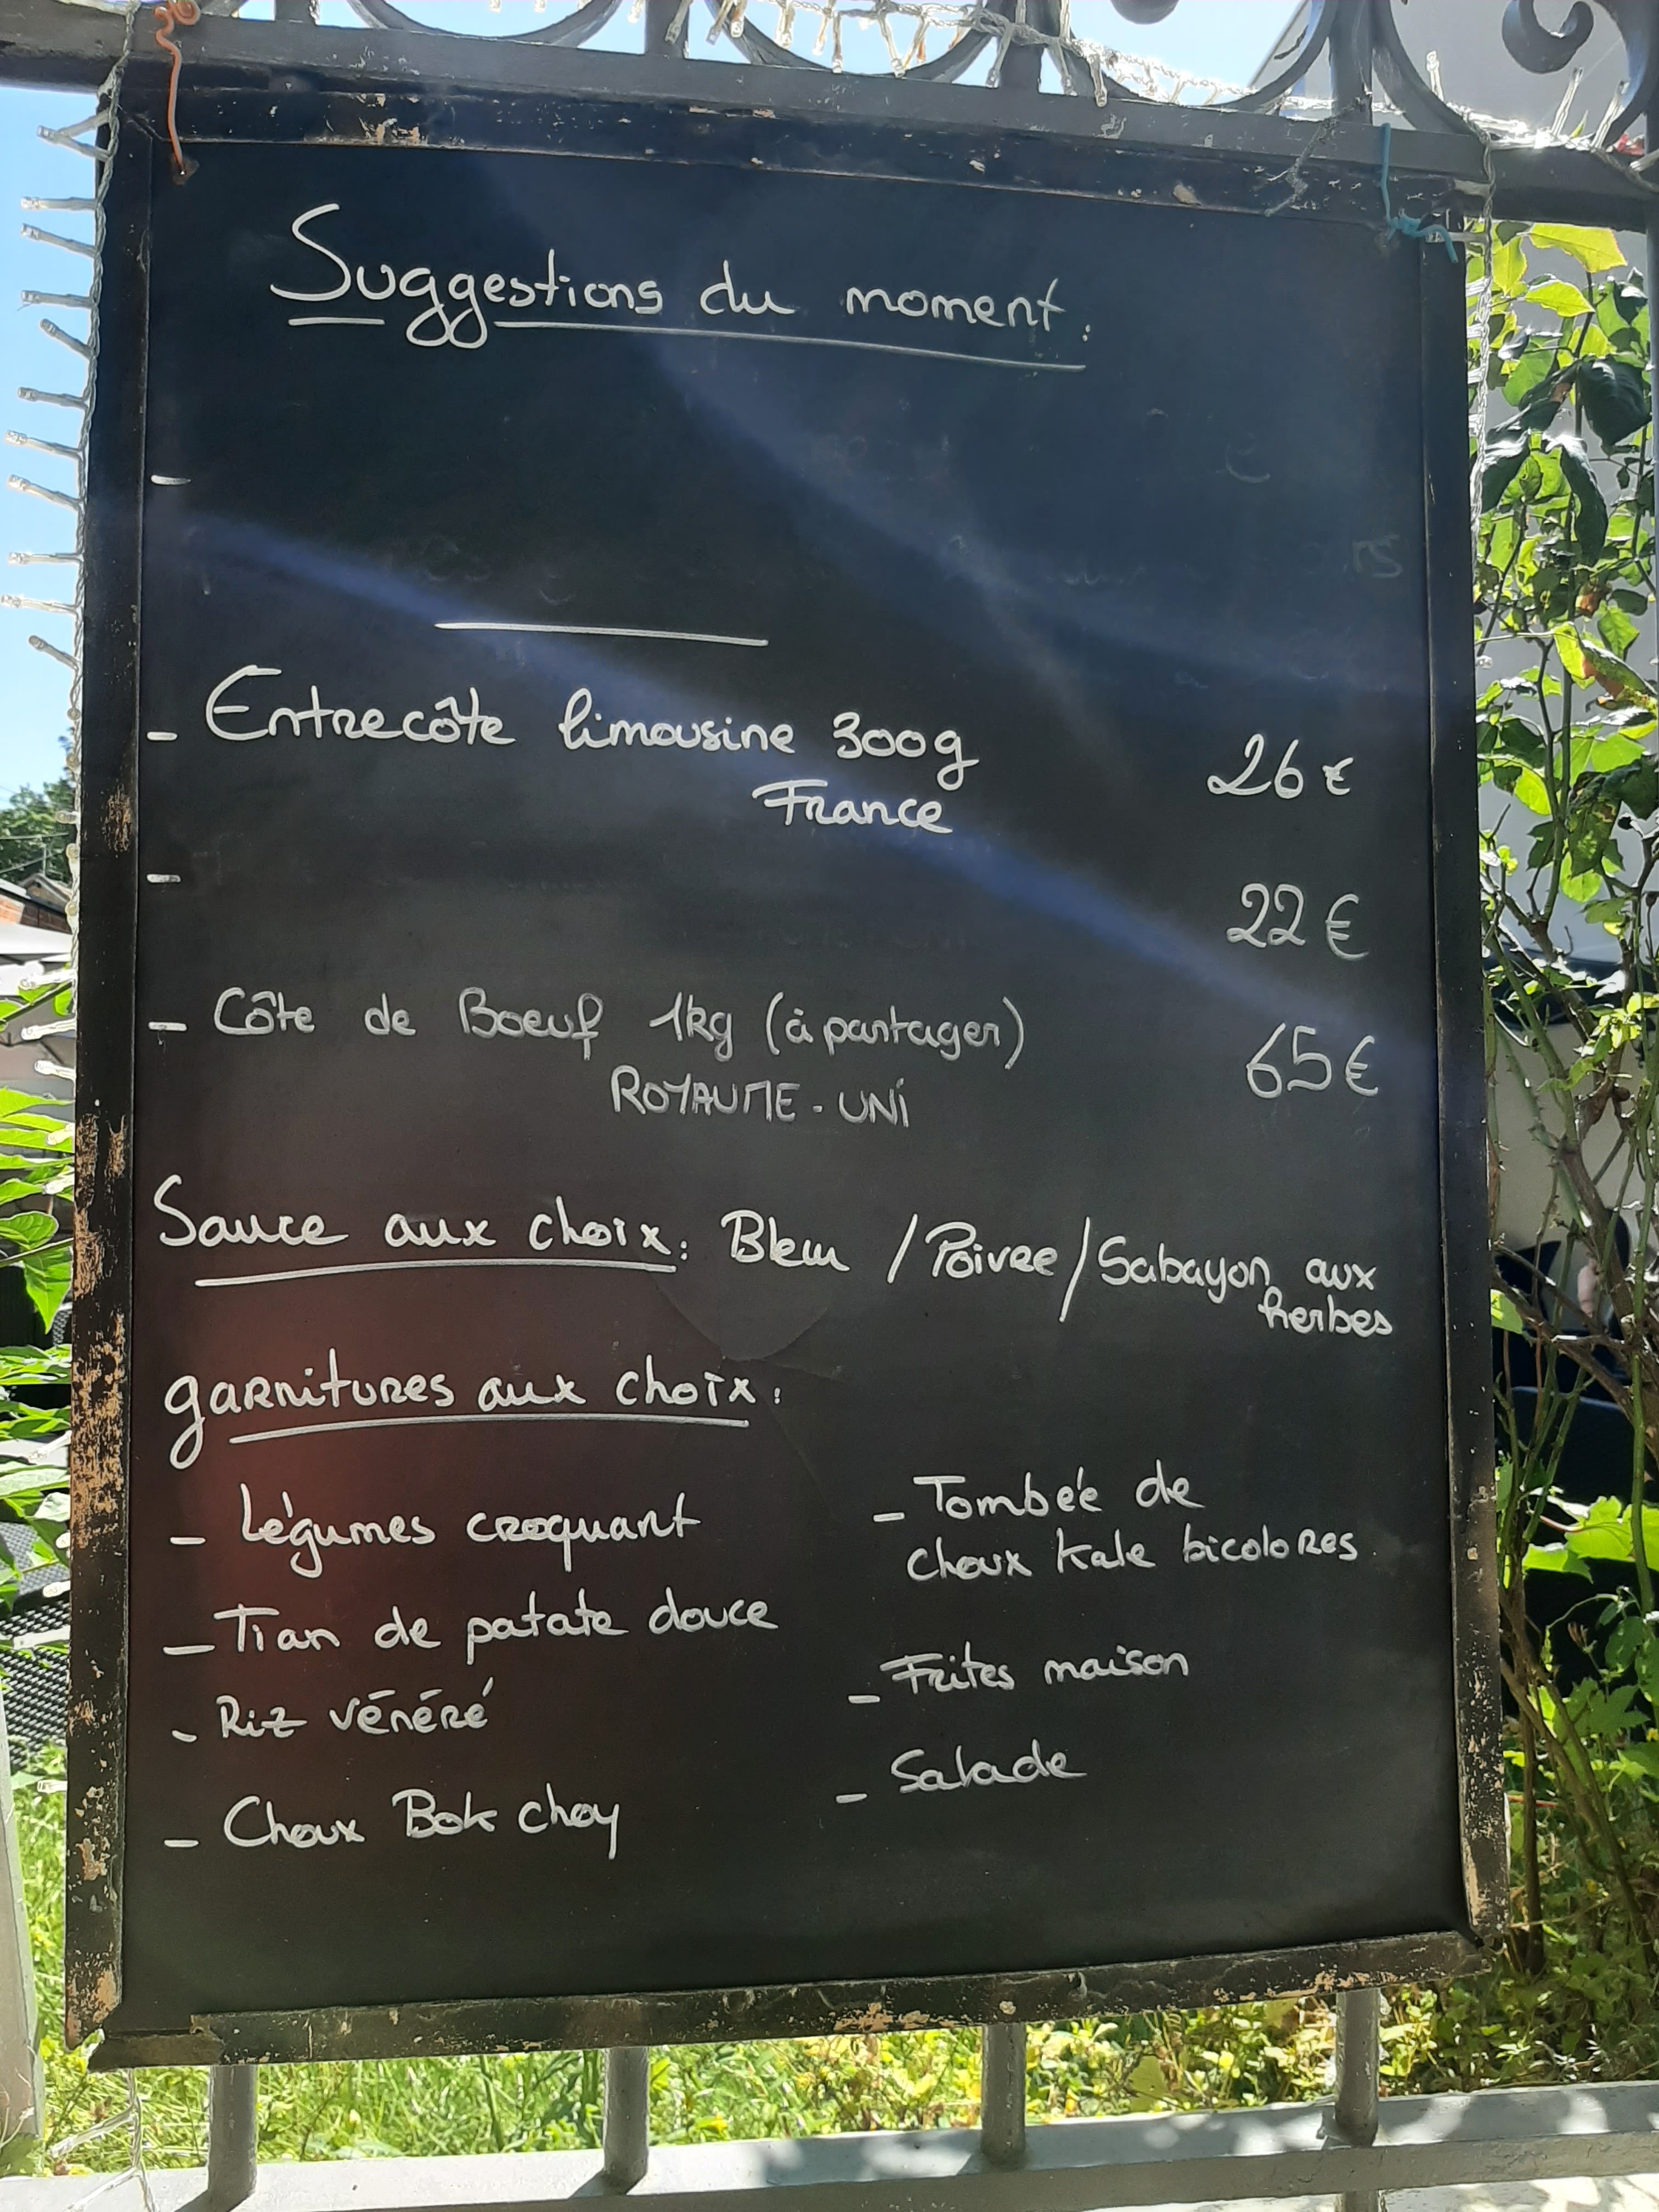 Suggestions du moment.
-
- Entrecôte limousine 300g 26€
France
- 22€
- Côte de Boeuf 1kg (à partager) 65€
ROYAUME-UNi
Sauce aux choix: Bleu / Poivre / Sabayon aux
herbes
garnitures aux choix:
- Légumes croquant
- Tian de patate douce
- Riz vénéré
- Choux Bok choy
- Tombée de
choux kale bicolores
- Frites maison
- Salade